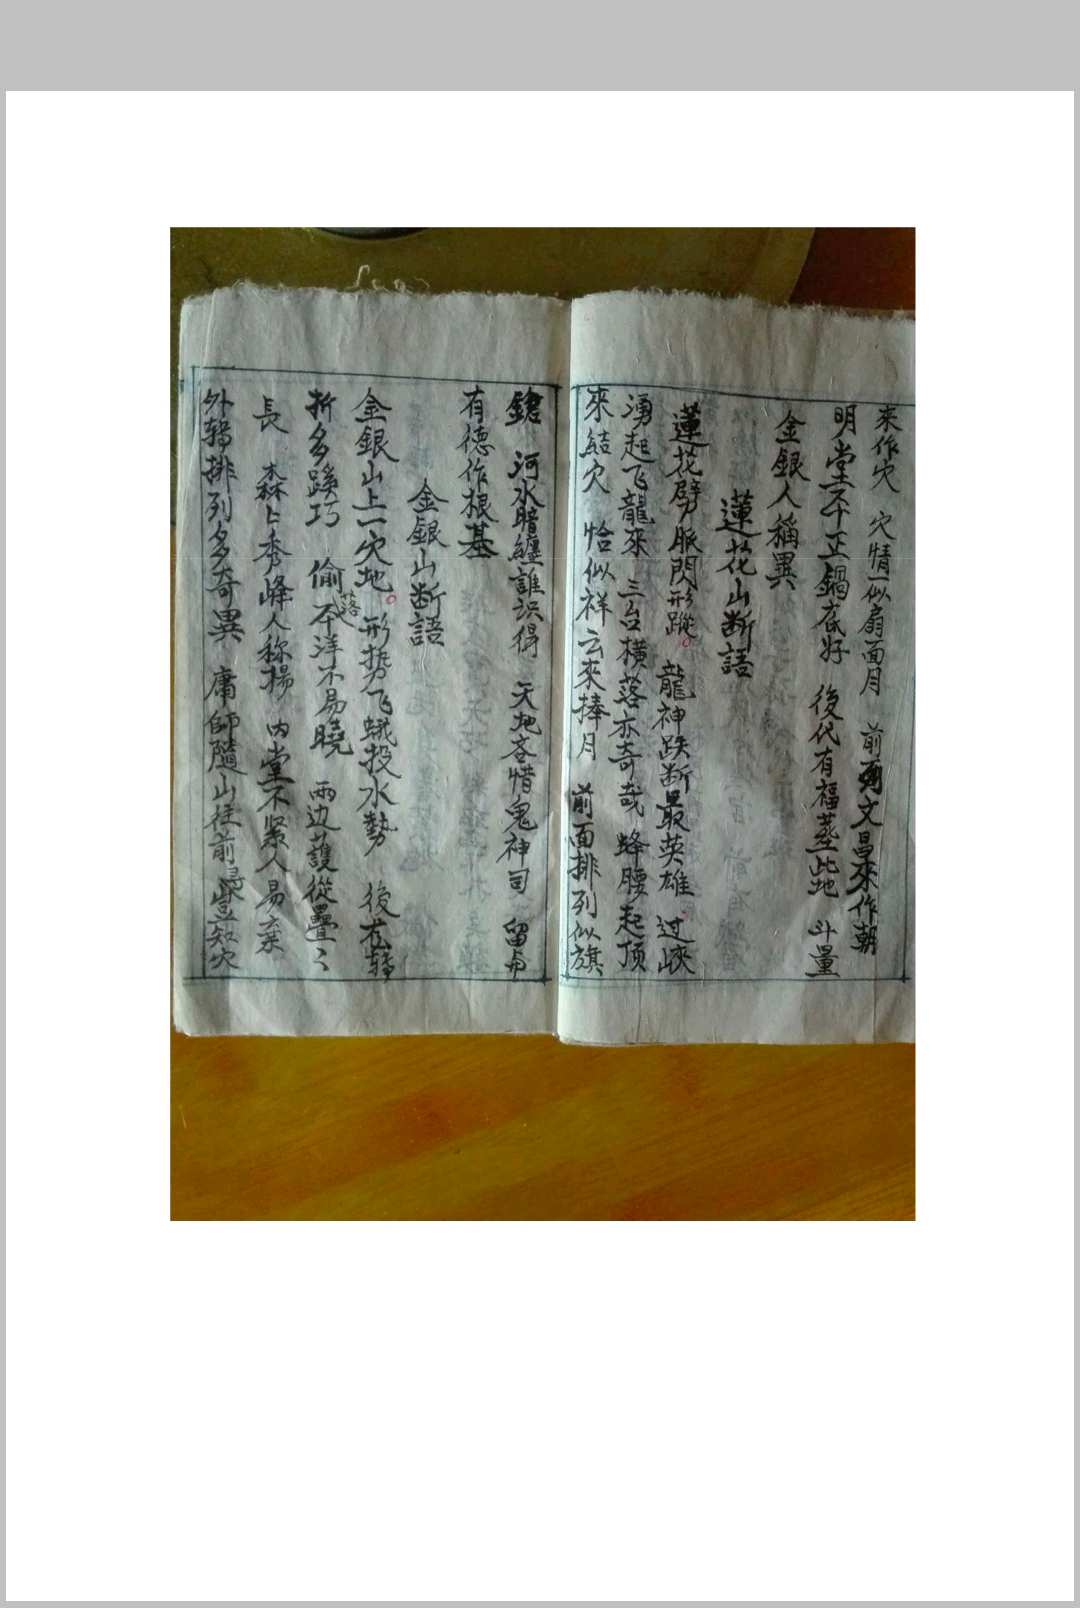 來作穴 穴情一似扇面月 前面文昌來作朝
明堂平正鍋底好 後代有福塟此地 斗量
金銀人稱異
蓮花山断語
蓮花劈脈閃形蹤 龍神跌断最英雄 过峽
湧起飞龍來 三台橫落亦奇哉 蜂腰起顶
來結穴 恰似祥云來捧月 前面排列似旗
鎗 河水暗纏誰识得 天地吝惜鬼神司 留与
有德作根基
金銀山断語
金銀山上一穴地 形势飞蛾投水勢 後左轉
折多蹊巧 偷落不洋不易曉 两边護從疊〻
長 森〻秀峰人称揚 内堂不緊人易棄
外轉排列多奇異 庸師隨山往前尋豈知穴